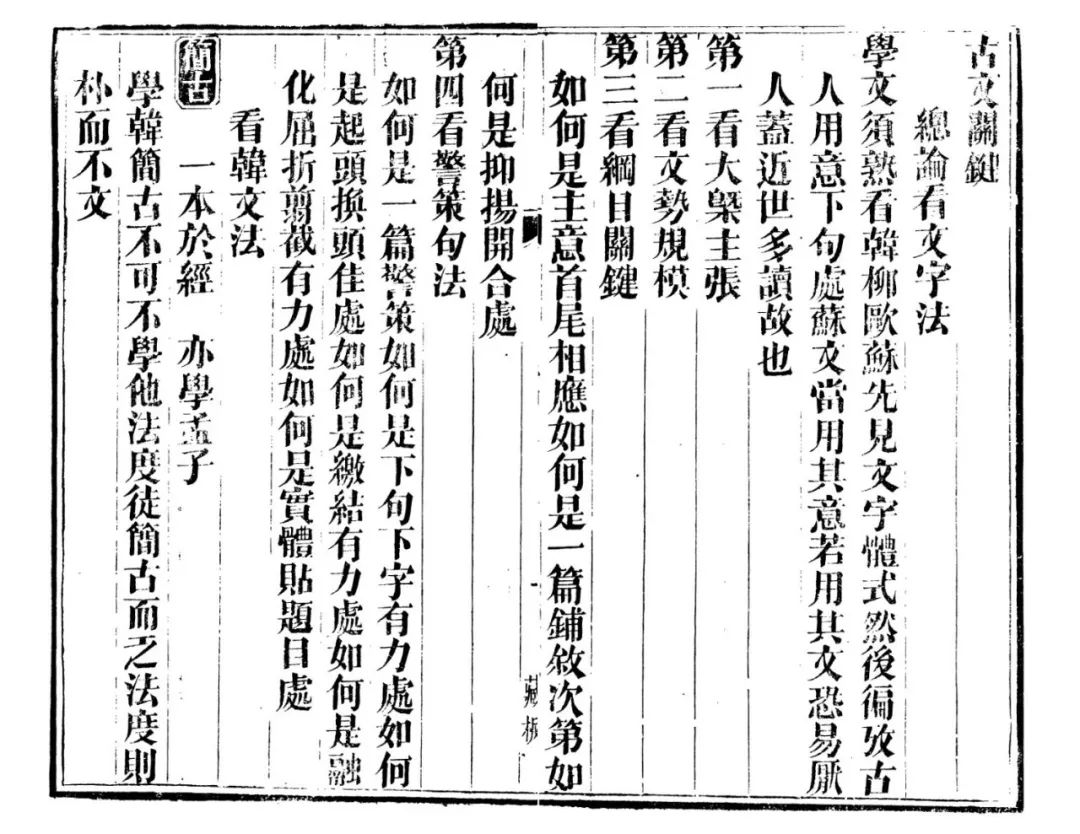 古文關鍵
總論看文字法
學文須熟看韓柳歐蘇先見文字體式然後徧攷古
人用意下句處蘇文當用其意若用其文恐易厭
人蓋近世多讀故也
第一看大槩主張
第二看文勢規模
第三看綱目關鍵
如何是主意首尾相應如何是一篇鋪敘次第如
何是抑揚開合處
第四看警策句法
如何是一篇警策如何是下句下字有力處如何
是起頭換頭佳處如何是繳結有力處如何是融
化屈折剪截有力處如何是實體貼題目處
看韓文法
簡古 一本於經 亦學孟子
學韓簡古不可不學他法度徒簡古而乏法度則
朴而不文